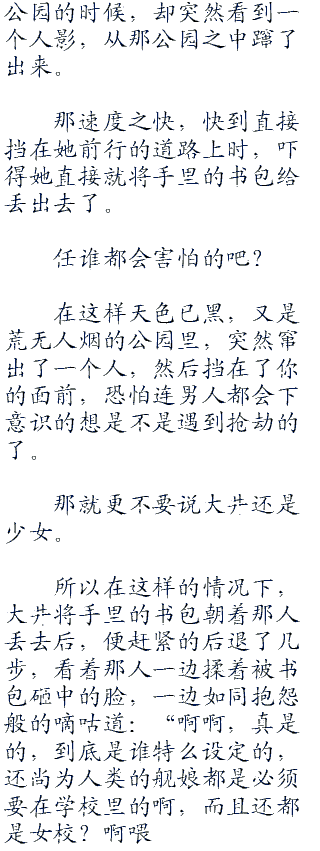 公园的时候，却突然看到一
个人影，从那公园之中蹿了
出来。
那速度之快，快到直接
挡在她前行的道路上时，吓
得她直接就将手里的书包给
丢出去了。
任谁都会害怕的吧？
在这样天色已黑，又是
荒无人烟的公园里，突然窜
出了一个人，然后挡在了你
的面前，恐怕连男人都会下
意识的想是不是遇到抢劫的
了。
那就更不要说大井还是
少女。
所以在这样的情况下，
大井将手里的书包朝着那人
丢去后，便赶紧的后退了几
步，看着那人一边揉着被书
包砸中的脸，一边如同抱怨
般的嘀咕道：“啊啊，真是
的，到底是谁特么设定的，
还尚为人类的舰娘都是必须
要在学校里的啊，而且还都
是女校？啊喂